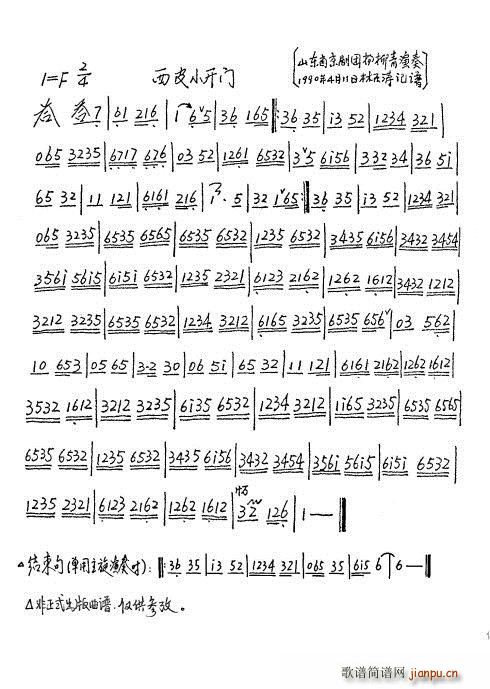 山东省京剧团杨柳青演奏
1=F 2/4 西皮小开门 1990年4月11日林玉涛记谱
7|61 216|1 6ˇ5|36 165‖:36 35|i3 52|1234 321|
065 3235|6717 676|03 52|1261 6532|3ˇ5 6i56|332 34|36 5i|
65 32|11 121|6161 216|1·5|32 1ˇ65:‖:36 35|i3 52|1234 321|
065 3235|6535 6565|6535 6532|1235 6532|3435 6i56|3432 3454|
356i 56i5|6i5i 6532|1235 2321|6123 2162|1262 1612|3432 1212|
3212 3235|6535 6532|1234 3212|6165 3235|6535 656ˇ|03 562|
10 653|05 65|3·2 30|06 5i|65 32|11 121|6161 2162|1262 1612|
3532 1612|3212 3235|6i35 6532|1234 3212|1i65 3235|6535 6565|
6535 6532|1235 6532|3435 6i56|3432 3454|356i 56i5|6i5i 6532|
1235 2321|6123 2162|1262 1612|32 126|1—‖
△结束句(单用主旋演奏时):‖:36 35|i3 52|1234 321|065 35|6i5 6|6—‖
△非正式出版曲谱.仅供参改。
歌谱简谱网
jianpu.cn